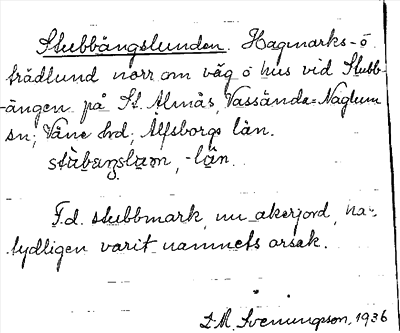 Stubbängslunden. Hagmarks- o
trädlund norr om väg o hus vid Stubb-
-ängen på St. Almås, Vassända-Naglum
sn; Väne hd; Älfsborgs län.
stùbaŋslum, -lån.
F.d. stubbmark, nu åkerjord, na-
tydligen varit namnets orsak.
D-M. Svenungson, 1936